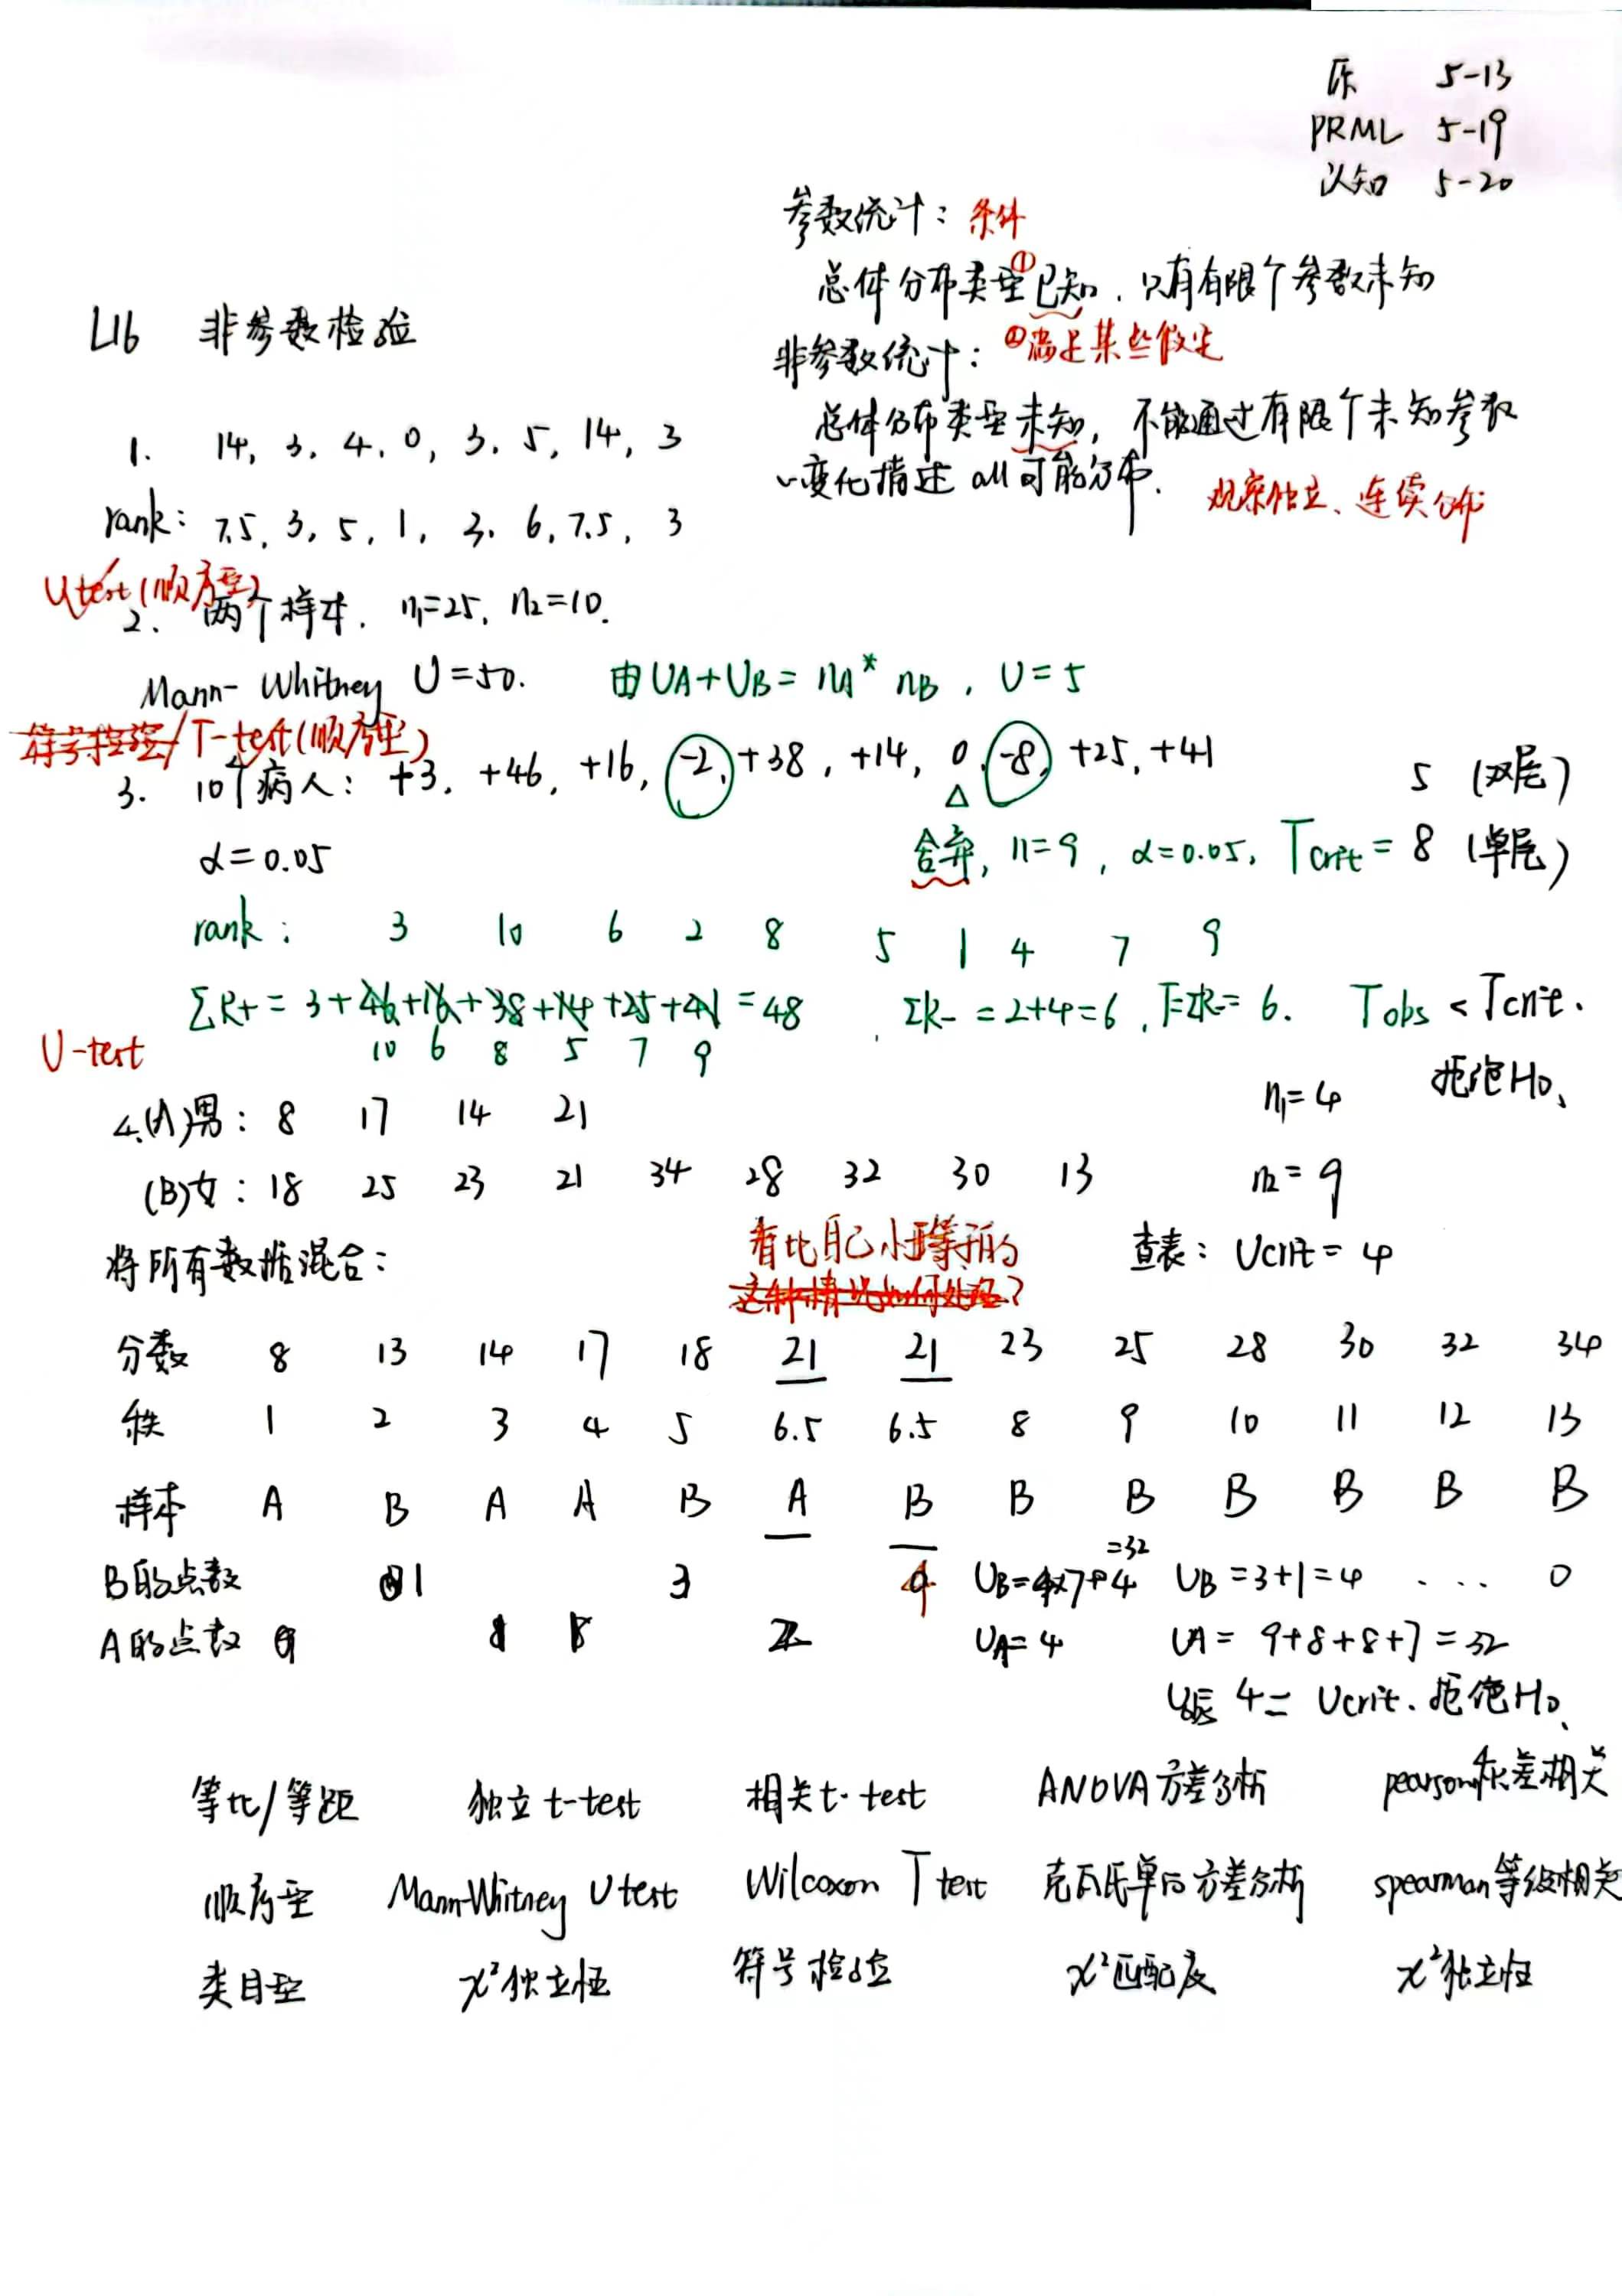 乐 5-13
PRML 5-19
认知 5-20
参数统计：条件
总体分布类型①已知，只有有限个参数未知
②满足某些假定
L16 非参数检验
非参数统计：
总体分布类型未知，不能通过有限个未知参数
变化描述 all 可能分布.
观察独立、连续分布
1. 14, 3, 4, 0, 3, 5, 14, 3
rank: 7.5, 3, 5, 1, 3, 6, 7.5, 3
U test (顺序型)
2. 两个样本. n1=25, n2=10.
Mann-Whitney U=50. 由 UA+UB = nA* nB, U=5
符号检验/T-test(顺序型)
3. 10个病人: +3, +46, +16, -2, +38, +14, 0, -8, +25, +41
5 (双尾)
α=0.05 舍弃, n=9, α=0.05, Tcrit = 8 (单尾)
rank: 3 10 6 2 8 5 1 4 7 9
ΣR+ = 3+46+16+38+14+25+41 = 48, ΣR- = 2+4=6, T=ΣR-= 6. Tobs < Tcrit.
10 6 8 5 7 9
拒绝H0、
U-test
4.(A)男: 8 17 14 21 n1=4
(B)女: 18 25 23 21 34 28 32 30 13 n2=9
将所有数据混合: 看比自己小或等于的 查表: Ucrit = 4
这种情况如何处理?
分数 8 13 14 17 18 21 21 23 25 28 30 32 34
秩 1 2 3 4 5 6.5 6.5 8 9 10 11 12 13
样本 A B A A B A B B B B B B B
B的点数 1 3 4 UB=4×7+4 =32 UB=3+1=4 ... 0
A的点数 UA=4 UA= 9+8+8+7=32
4= Ucrit. 拒绝H0、
等比/等距 独立 t-test 相关 t-test ANOVA 方差分析 pearson积差相关
顺序型 Mann-Whitney U test Wilcoxon T test 克瓦氏单向方差分析 spearman等级相关
类目型 χ²独立性 符号检验 χ²匹配度 χ²独立性